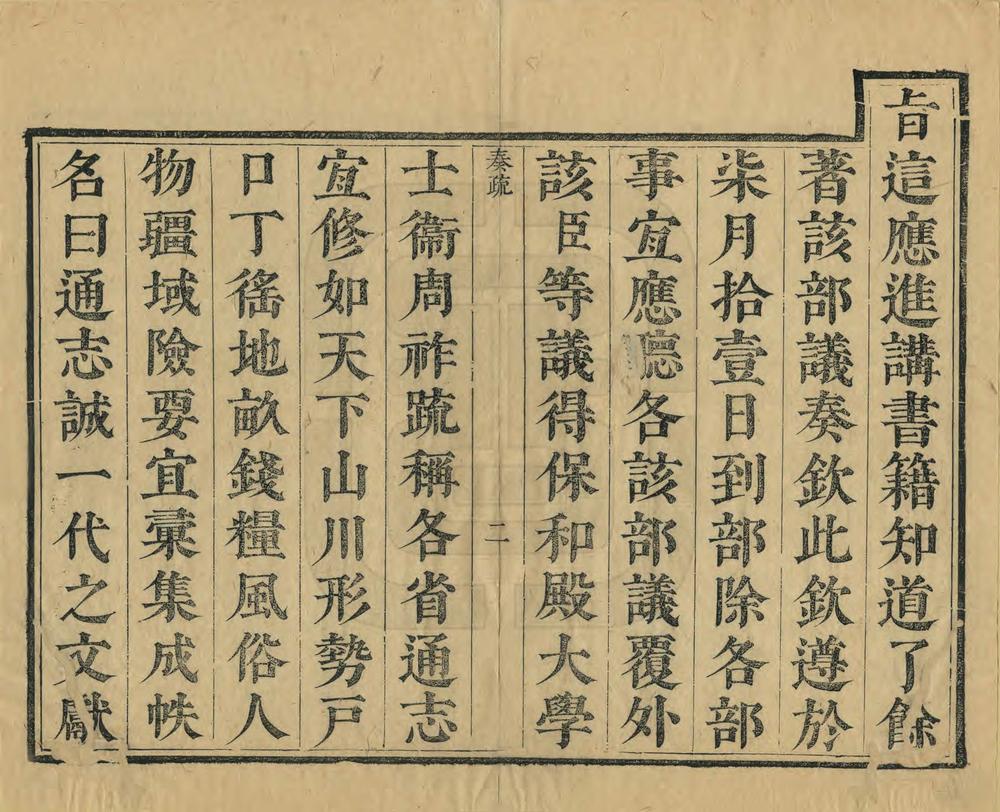 旨這應進講書籍知道了餘
著該部議奏欽此欽遵於
柒月拾壹日到部除各部
事宜應聽各該部議覆外
該臣等議得保和殿大學
奏疏 二
士衞周祚疏稱各省通志
宜修如天下山川形勢戸
口丁徭地畝錢糧風俗人
物疆域險要宜彙集成帙
名曰通志誠一代之文獻